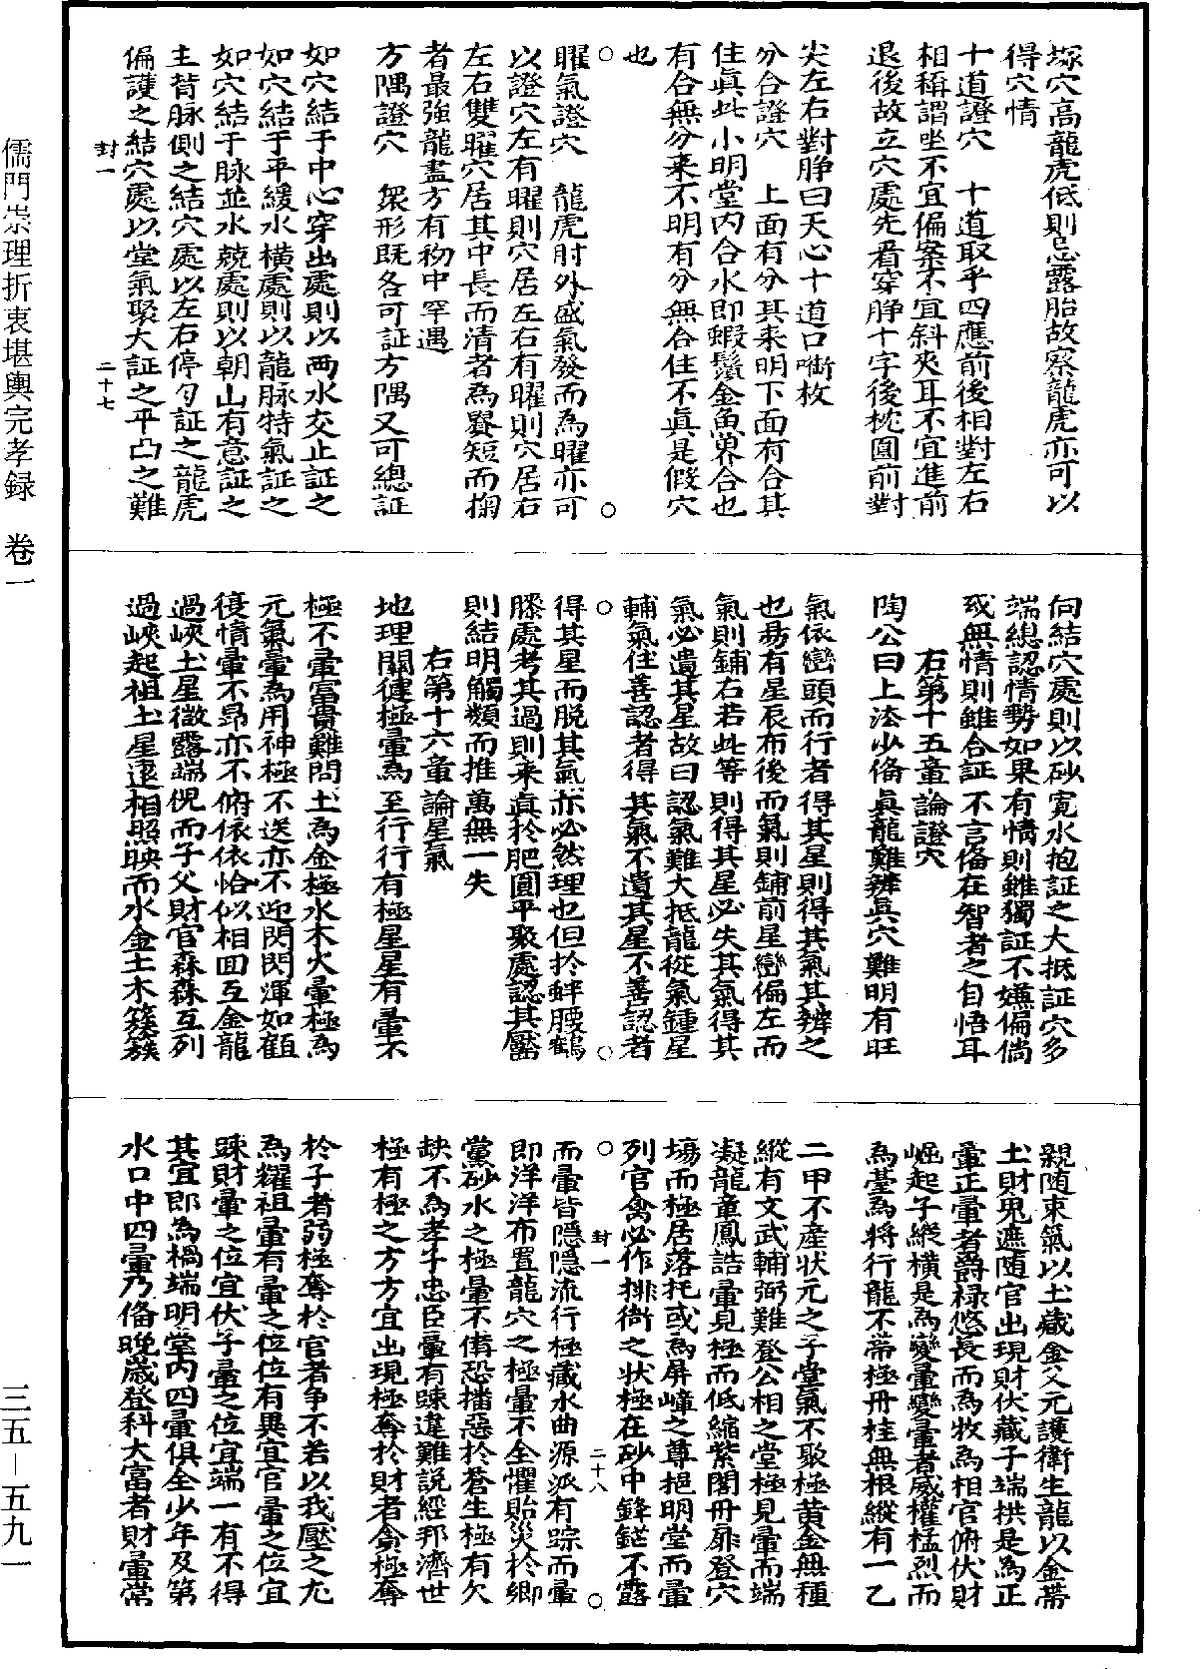 塚穴高龍虎低則忌露胎故察龍虎亦可以
得穴情
十道證穴　十道取乎四應前後相對左右
相稱謂坐不宜偏案不宜斜夾耳不宜進前
退後故立穴處先看穿脖十字後枕圓前對
尖左右對脖曰天心十道口啣枚
分合證穴　上面有分其来明下面有合其
住眞此小明堂內合水即蝦鬚金魚界合也
有合無分来不明有分無合住不眞是假穴
也
曜氣證穴　龍虎肘外盛氣發而為曜亦可
以證穴左有曜則穴居左右有曜則穴居右
左右雙曜穴居其中長而清者為贒短而搊
者最強龍盡方有秒中罕遇
方隅證穴　衆形既各可証方隅又可總証
如穴結于中心穿出處則以兩水交止証之
如穴結于平緩水橫處則以龍脉特氣証之
如穴結于脉並水競處則以朝山有意証之
主昔脉側之結穴處以左右停匀証之龍虎
偏護之結穴處以堂氣聚大証之平凸之難
封一
二十七
向結穴處則以砂寬水抱証之大抵証穴多
端總認情勢如果有情則雖獨証不嫌偏倘
或無情則雖合証不言俻在智者之自悟耳
右第十五章論證穴
陶公曰上法少俻眞龍難辨眞穴難明有旺
氣依巒頭而行者得其星則得其氣其辨之
也昜有星辰布後而氣則鋪前星巒偏左而
氣則鋪右若此等則得其星必失其氣得其
氣必遺其星故曰認氣難大抵龍從氣鍾星
輔氣住善認者得其氣不遺其星不善認者
得其星而脱其氣亦必然理也但於蜂腰鶴
膝處考其過則来眞於肥圓平聚處認其靨
則結明觸類而推萬無一失
右第十六章論星氣
地理關徤極暈為至行行有極星星有暈不
極不暈富貴難問土為金極水木火暈極為
元氣暈為用神極不送亦不迎閃閃渾如顧
復情暈不昂亦不俯依依恰似相回互金龍
過峽土星微露端倪而子父財官森森互列
過峽起祖土星遠相照映而水金土木簇簇
親随束氣以土蔵金父元護衛生龍以金帶
土財鬼遮随官出現財伏藏子端拱是為正
暈正暈者爵禄悠長而為牧為相官俯伏財
崛起子縱橫是為變暈變暈者威權猛烈而
為臺為將行龍不帶極丹桂無根縱有一乙
二甲不產狀元之子堂氣不聚極黃金無種
縱有文武輔弼難登公相之堂極見暈而端
凝龍章鳳誥暈見極而低縮紫閣丹扉登穴
場而極居落托或為屏嶂之尊挹明堂而暈
列官禽必作排衙之状極在砂中鋒鋩不露
而暈皆隱隱流行極藏水曲源派有踪而暈
即洋洋布置龍穴之極暈不全懼貽災於鄉
黨砂水之極暈不俻恐播惡於蒼生極有欠
缺不為孝子忠臣暈有踈違難説經邦濟世
極有極之方方宜出現極奪於財者貪極奪
於子者弱極奪於官者争不若以我壓之尤
為耀祖暈有暈之位位有異宜官暈之位宜
踈財暈之位宜伏子暈之位宜端一有不得
其宜即為禍端明堂內四暈俱全少年及第
水口中四暈乃俻晚歳登科大富者財暈常
封一
二十八
儒門崇理折衷堪輿完孝録　卷一
三五－五九一